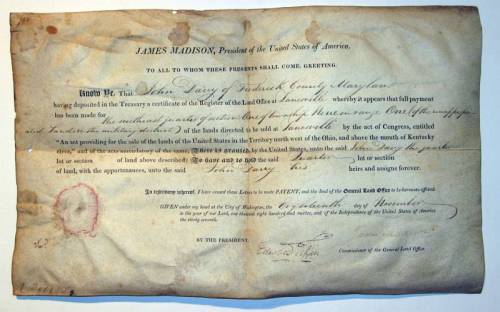 JAMES MADISON, President of the United States of America,
TO ALL TO WHOM THESE PRESENTS SHALL COME, GREETING.
Know Ye, That John Darry of Frederick County Maryland
having deposited in the Treasury a certificate of the Register of the Land Office at Zanesville whereby it appears that full payment
has been made for the quarter of section One of township Nine in range One (of the
Lands in the military district) of the lands directed to be sold at Zanesville by the act of Congress, entitled
"An act providing for the sale of the lands of the United States in the Territory north west of the Ohio, and above the mouth of Kentucky
river," and of the acts amendatory of the same, There is granted, by the United States, unto the said John Darry the quarter
lot or section of land above described: To have and to hold the said Quarter lot or section
of land, with the appurtenances, unto the said John Darry his heirs and assigns forever.
In testimony whereof, I have caused these Letters to be made PATENT, and the Seal of the General Land Office to be hereunto affixed.
GIVEN under my hand at the City of Washington, the Eighteenth day of November
in the year of our Lord, one thousand eight hundred and twelve, and of the Independence of the United States of America
the thirty seventh.
BY THE PRESIDENT,
Commissioner of the General Land Office.